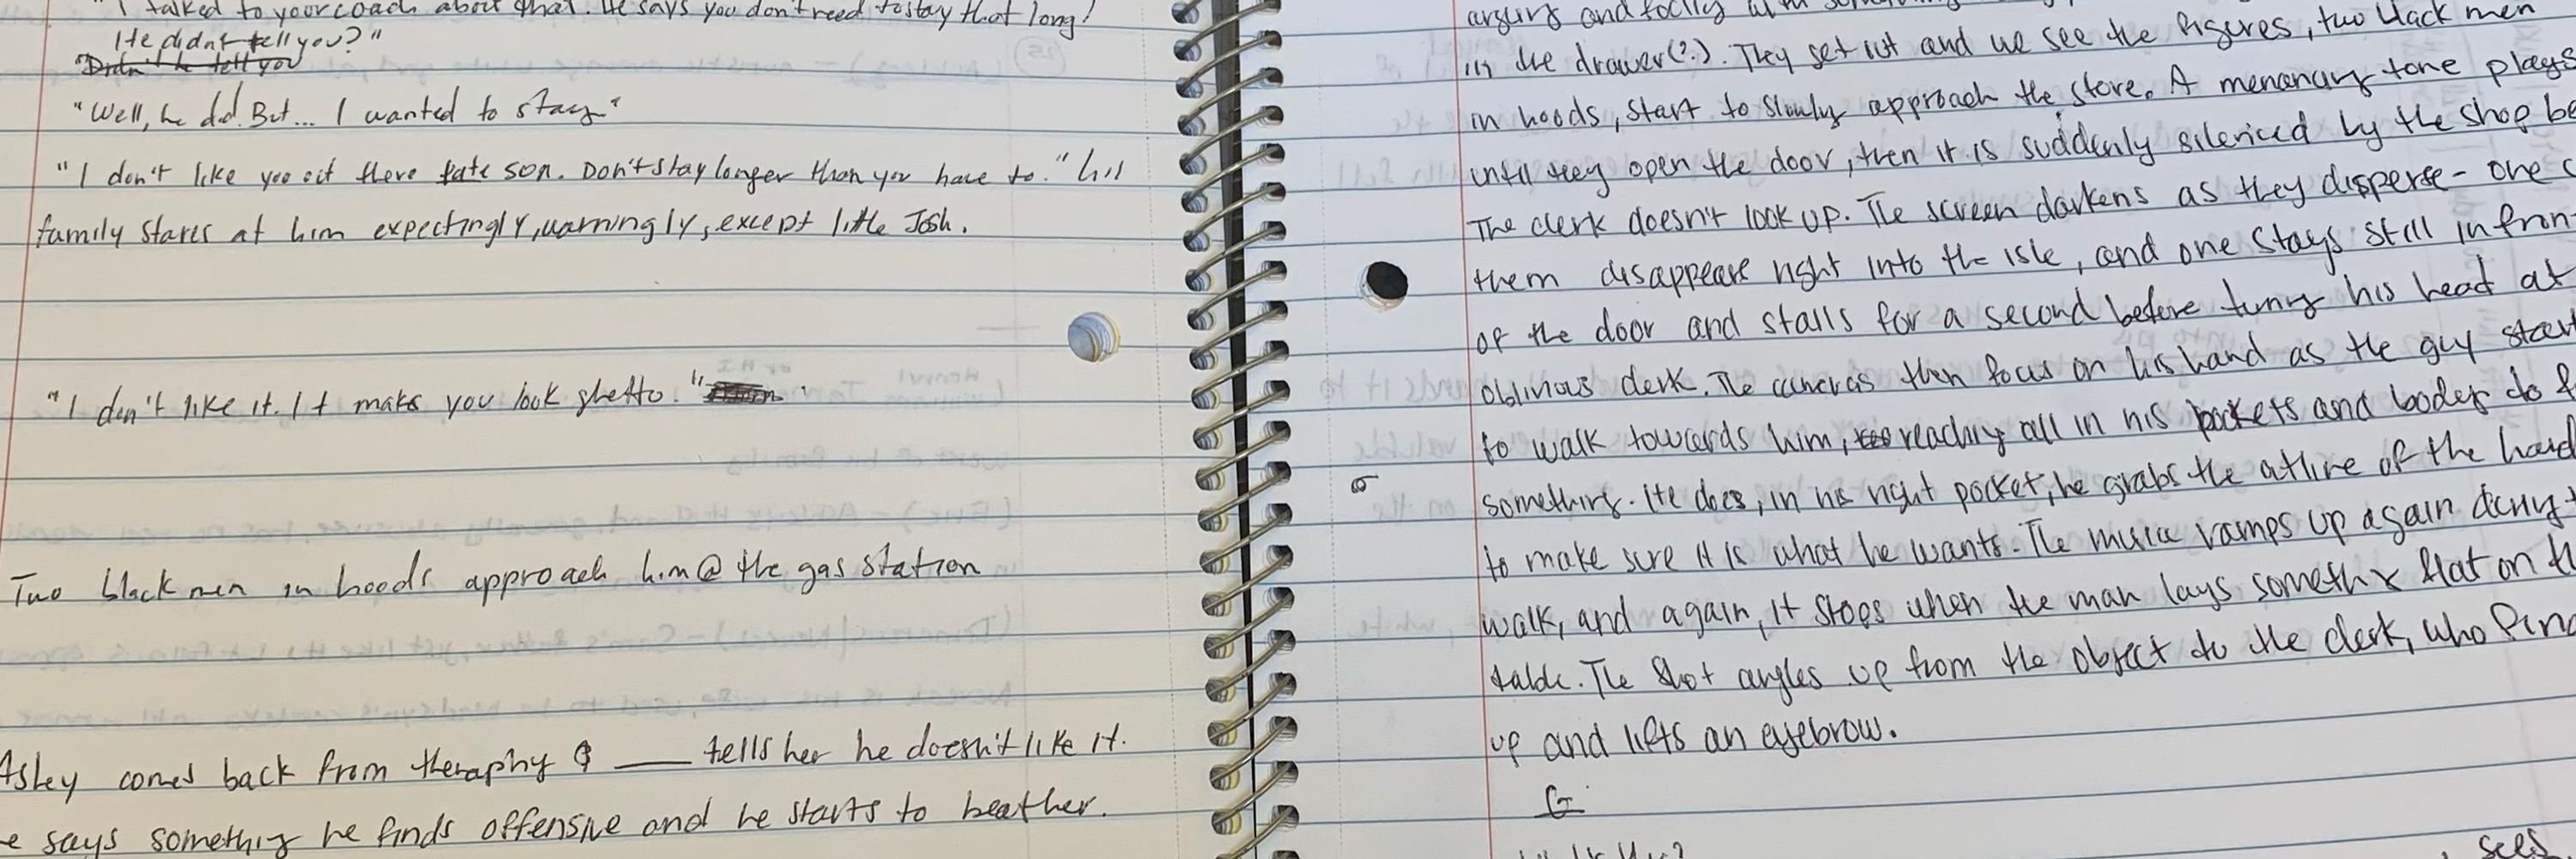 "I talked to your coach about that. He says you don't need to stay that long!
He didn't tell you?"
"Didn't he tell you
"Well, he did. But... I wanted to stay"
"I don't like you out there late son. Don't stay longer than you have to." his
family stares at him expectingly, warningly, except little Josh.
"I don't like it. It makes you look ghetto."
Two black men in hoods approach him @ the gas station
Ashey comes back from theraphy & ___ tells her he doesn't like it.
e says something he finds offensive and he starts to beather.
arguing and
in the drawer(?). They get out and we see the figures, two black men
in hoods, start to slowly approach the store. A menancing tone plays
until they open the door, then it is suddenly silenced by the shop be
The clerk doesn't look up. The screen darkens as they disperse - one o
them disappears right into the isle, and one stays still in fron
of the door and stalls for a second before turning his head at
oblivious clerk. The cameras then focus on his hand as the guy start
to walk towards him, reaching all in his pockets and bodey do f
something. He does, in his right pocket, he grabs the outline of the hand
to make sure it is what he wants. The music ramps up again during t
walk, and again, it stops when the man lays something flat on th
table. The shot angles up from the object to the clerk, who fina
up and lifts an eyebrow.
G
sees